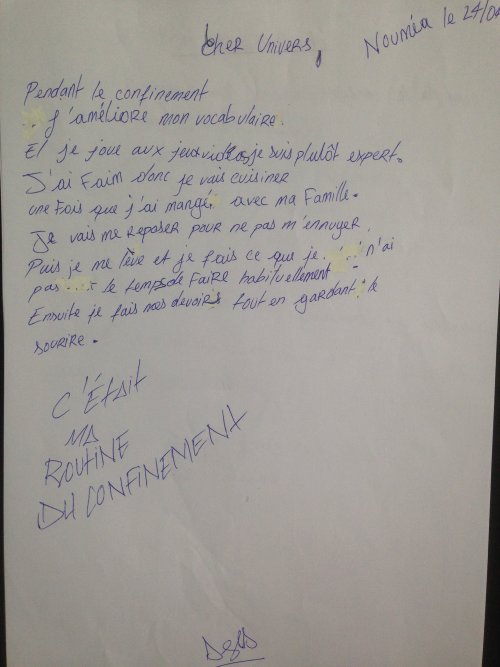 Nouméa le 24/04
Cher Univers,
Pendant le confinement
J'améliore mon vocabulaire.
Et je joue aux jeux vidéos, je suis plutôt expert.
J'ai faim donc je vais cuisiner
une fois que j'ai mangé avec ma famille.
Je vais me reposer pour ne pas m'ennuyer,
Puis je me lève et je fais ce que je n'ai
pas le temps de faire habituellement
Ensuite je fais mes devoirs tout en gardant le
sourire.
C'était
MA
ROUTINE
DU CONFINEMENT